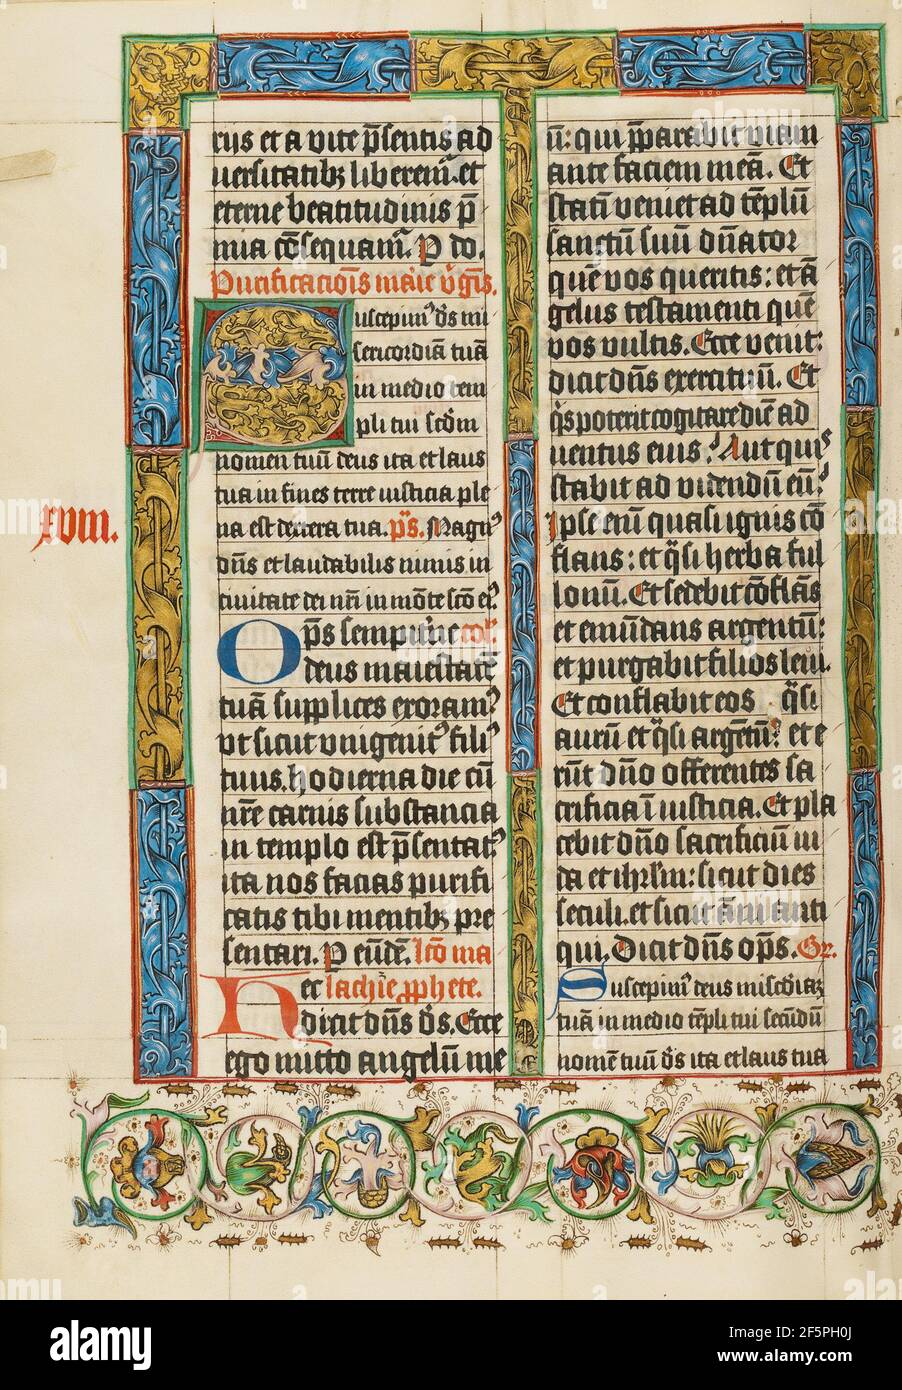 riis et a vite p̄sentis ad
uersitatibꝫ liberem̄. et
eterne beatitudinis p̄
mia cōsequam̄. P do.
Purificatiōis marie v̓gīs.
Suscepim⁹ ds̄ mi
sericordiā tuā
in medio tem
pli tui scd̄m
nomen tuū deus ita et laus
tua in fines terre iusticia ple
na est dextera tua. p̄s. Magn⁹
dn̄s et laudabilis nimis in
ciuitate dei nr̄i in mōte scō ei⁹
Op̄s sempit̓ne col̄.
deus maiestatē
tuā supplices exoram⁹
vt sicut vnigenit⁹ fili⁹
tuus. hodierna die cū
nr̄e carnis substancia
in templo est p̄sentat⁹
ita nos facias purifi
catis tibi mentibꝫ pre
sentari. P eūdē. lcō ma
Hec lachie ꝓphete.
dicit dn̄s ds̄. Ecce
ego mitto angelū me
xviii.
ū: qui p̄parabit viam
ante faciem meā. Et
statī veniet ad tēplū
sanctū suū dn̄ator
quē vos queritis: et ā
gelus testamenti quē
vos vultis. Ecce venit:
dicit dn̄s exercituū. Et
q̓s poterit cogitare diē ad
uentus eius? Aut quis
stabit ad videndū eū?
Ipse enī quasi ignis cō
flans: et q̄si herba ful
lonū. Et sedebit cōflās
et emūdans argentū:
et purgabit filios leui.
Et conflabit eos q̄si
aurū et q̄si argētū: et e
rūt dn̄o offerentes sa
crificia ī iusticia. Et pla
cebit dn̄o sacrificiū iu
da et ihrl̄m: sicut dies
seculi. et sicut āni anti
qui. Dicit dn̄s op̄s. Gr.
Suscepim⁹ deus mis̄cdiaꝫ
tuā in medio tēpli tui secūdū
nomē tuū ds̄ ita et laus tua
alamy
Image ID: 2F5PH0J
www.alamy.com